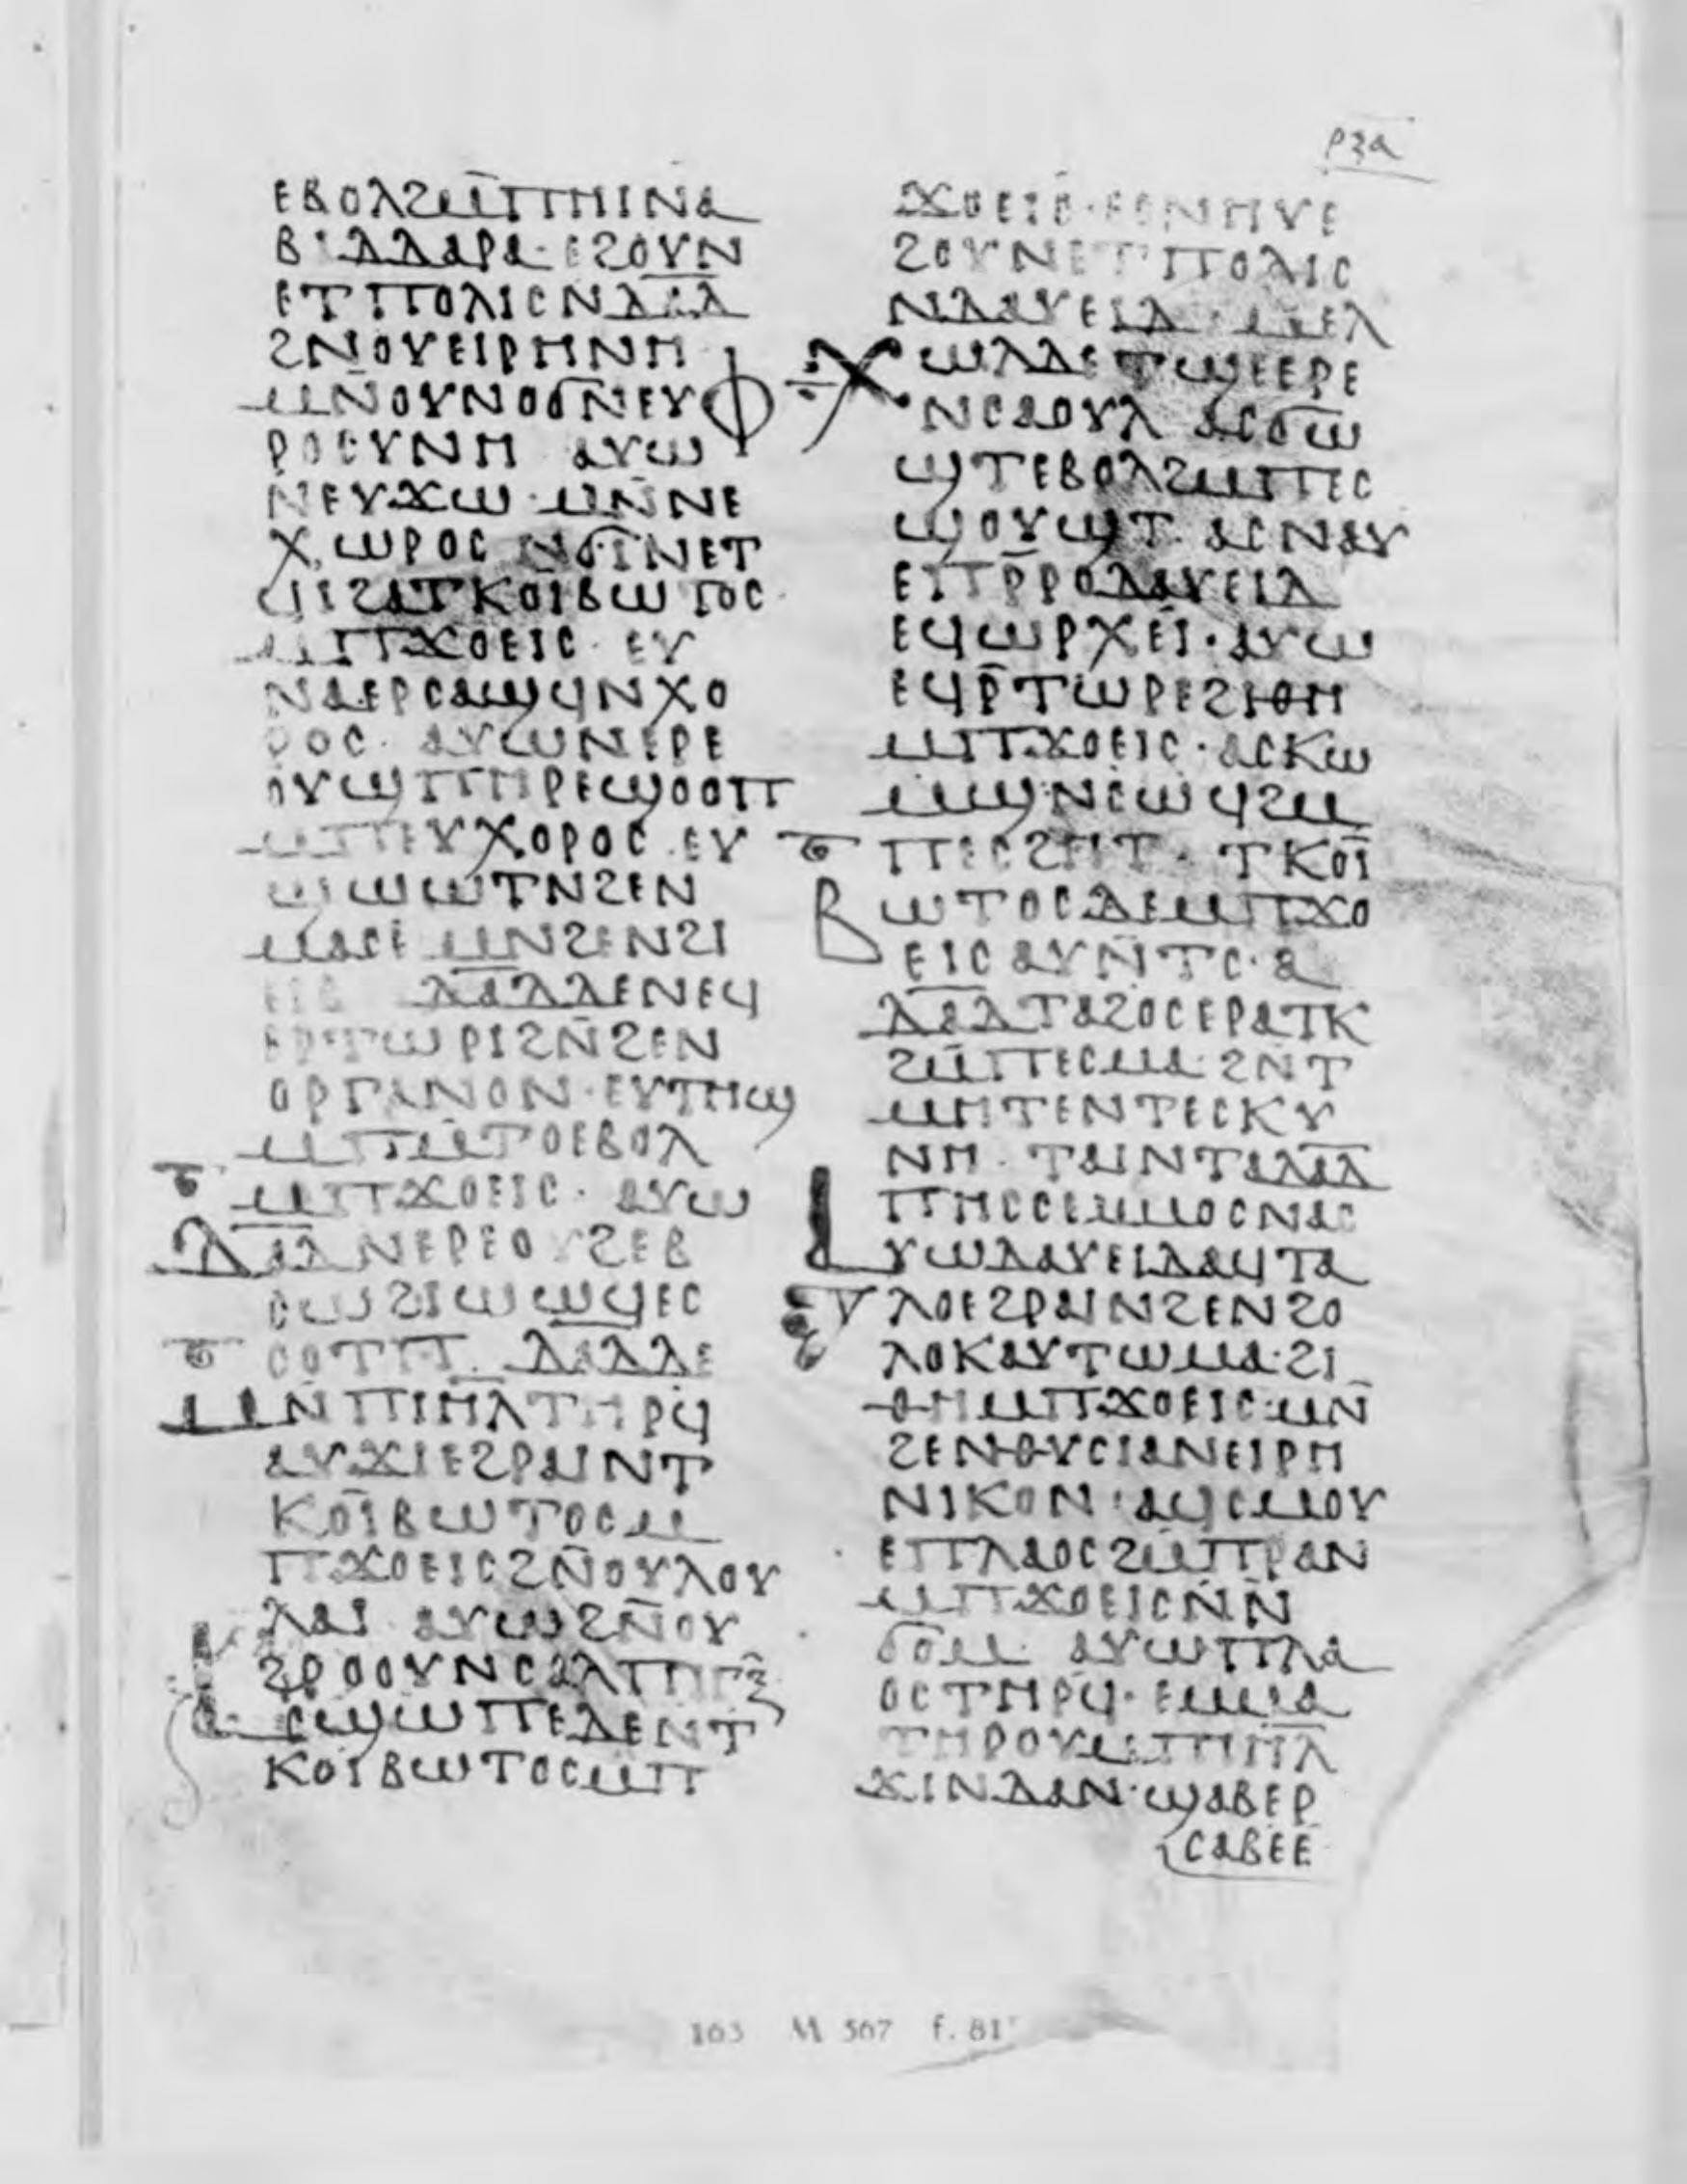 ⲣⲝⲁ
ⲉⲃⲟⲗϩⲙ̄ⲡⲏⲓⲛⲁ
ⲃⲓⲇⲇⲁⲣⲁ· ⲉϩⲟⲩⲛ
ⲉⲧⲡⲟⲗⲓⲥⲛⲇⲁ̄ⲇ̄
ϩⲛⲟⲩⲉⲓⲣⲏⲛⲏ
ⲙⲛ̄ⲟⲩⲛⲟϭⲛ̄ⲉⲩⲫ
ⲣⲟⲥⲩⲛⲏ ⲁⲩⲱ
ⲛⲉⲩϫⲱ ⲙⲛ̄ⲛⲉ
ⲭⲱⲣⲟⲥ ⲛϭⲓⲛⲉⲧ
ϥⲓϩⲁⲧⲕⲟⲓⲃⲱⲧⲟⲥ
ⲙⲡϫⲟⲉⲓⲥ· ⲉⲩ
ⲛⲁⲉⲣⲥⲁϣϥⲛⲭⲟ
ⲣⲟⲥ· ⲁⲩⲱⲛⲉⲣⲉ
ⲟⲩϣⲡⲏⲣⲉϣⲟⲟⲡ
ⲙⲡⲉⲩⲭⲟⲣⲟⲥ· ⲉⲩ
ϣⲱⲱⲧⲛϩⲉⲛ
ⲙⲁⲥⲉ ⲙⲛϩⲉⲛϩⲓ
ⲉⲓⲃ ⲇⲁ̄ⲇ̄ⲇⲉⲛⲉϥ
ⲉⲣⲧⲱⲣⲓϩⲛ̄ϩⲉⲛ
ⲟⲣⲅⲁⲛⲟⲛ· ⲉⲩⲧⲏϣ
ⲙⲡⲙ̄ⲧⲟⲉⲃⲟⲗ
ⲙⲡϫⲟⲉⲓⲥ· ⲁⲩⲱ
ⲇⲁ̄ⲇ̄ⲛⲉⲣⲉⲟⲩϩⲉⲃ
ⲥⲱϩⲓⲱⲱϥⲉⲥ
ⲥⲟⲧⲡ· ⲇⲁ̄ⲇ̄ⲇⲉ
ⲙⲛⲡⲓⲏ̄ⲗⲧⲏⲣϥ
ⲁⲩϫⲓⲉϩⲣⲁⲓⲛⲧ
ⲕⲟⲓⲃⲱⲧⲟⲥⲙ
ⲡϫⲟⲉⲓⲥϩⲛ̄ⲟⲩⲗⲟⲩ
ⲗⲁⲓ ⲁⲩⲱϩⲛ̄ⲟⲩ
ϩⲣⲟⲟⲩⲛⲥⲁⲗⲡⲓⲅⲝ
ⲁⲥϣⲱⲡⲉⲇⲉⲛⲧ
ⲕⲟⲓⲃⲱⲧⲟⲥⲙⲡ
ϫⲟⲉⲓⲥ· ⲉⲥⲛⲏⲩⲉ
ϩⲟⲩⲛⲉⲧⲡⲟⲗⲓⲥ
ⲛⲇⲁⲩⲉⲓⲇ· ⲙⲉⲗ
ⲭⲱⲗⲇⲉⲧϣⲉⲉⲣⲉ
ⲛⲥⲁⲟⲩⲗ ⲁⲥϭⲱ
ϣⲧⲉⲃⲟⲗϩⲙⲡⲉⲥ
ϣⲟⲩϣⲧ· ⲁⲥⲛⲁⲩ
ⲉⲡⲣ̄ⲣⲟⲇⲁⲩⲉⲓⲇ
ⲉϥⲱⲣⲭⲉⲓ· ⲁⲩⲱ
ⲉϥⲣ̄ⲧⲱⲣⲉϩⲓⲑⲏ
ⲙⲡϫⲟⲉⲓⲥ· ⲁⲥⲕⲱ
ⲙϣⲛⲥⲱϥϩⲙ
ⲡⲉⲥϩⲏⲧ· ⲧⲕⲟⲓ
ⲃⲱⲧⲟⲥⲇⲉⲙⲡϫⲟ
ⲉⲓⲥⲁⲩⲛ̄ⲧⲥ· ⲁ
ⲇⲁ̄ⲇⲧⲁϩⲟⲥⲉⲣⲁⲧⲕ
ϩⲙ̄ⲡⲉⲥⲙⲁ· ϩⲛⲧ
ⲙⲏⲧⲉⲛⲧⲉⲥⲕⲩ
ⲛⲏ· ⲧⲁⲓⲛⲧⲁⲇⲁ̄ⲇ̄
ⲡⲏⲥⲥⲉⲙⲙⲟⲥⲛⲁⲥ
ⲁⲩⲱⲇⲁⲩⲉⲓⲇⲁϥⲧⲁ
ⲗⲟⲉϩⲣⲁⲓⲛϩⲉⲛϩⲟ
ⲗⲟⲕⲁⲩⲧⲱⲙⲁ· ϩⲓ
ⲑⲏⲙⲡϫⲟⲉⲓⲥ· ⲙⲛ̄
ϩⲉⲛⲑⲩⲥⲓⲁⲛⲉⲓⲣⲏ
ⲛⲓⲕⲟⲛ· ⲁϥⲥⲙⲟⲩ
ⲉⲡⲗⲁⲟⲥϩⲙ̄ⲡⲣⲁⲛ
ⲙⲡϫⲟⲉⲓⲥⲛ̄ⲛ̄
ϭⲟⲙ· ⲁⲩⲱⲡⲗⲁ
ⲟⲥⲧⲏⲣϥ· ⲉⲙⲙⲁ
ⲧⲏⲣⲟⲩⲙⲡⲓⲏ̄ⲗ̄
ϫⲓⲛⲇⲁⲛ· ϣⲁⲃⲉⲣ
ⲥⲁⲃⲉⲉ
163 M 567 f. 81ʳ